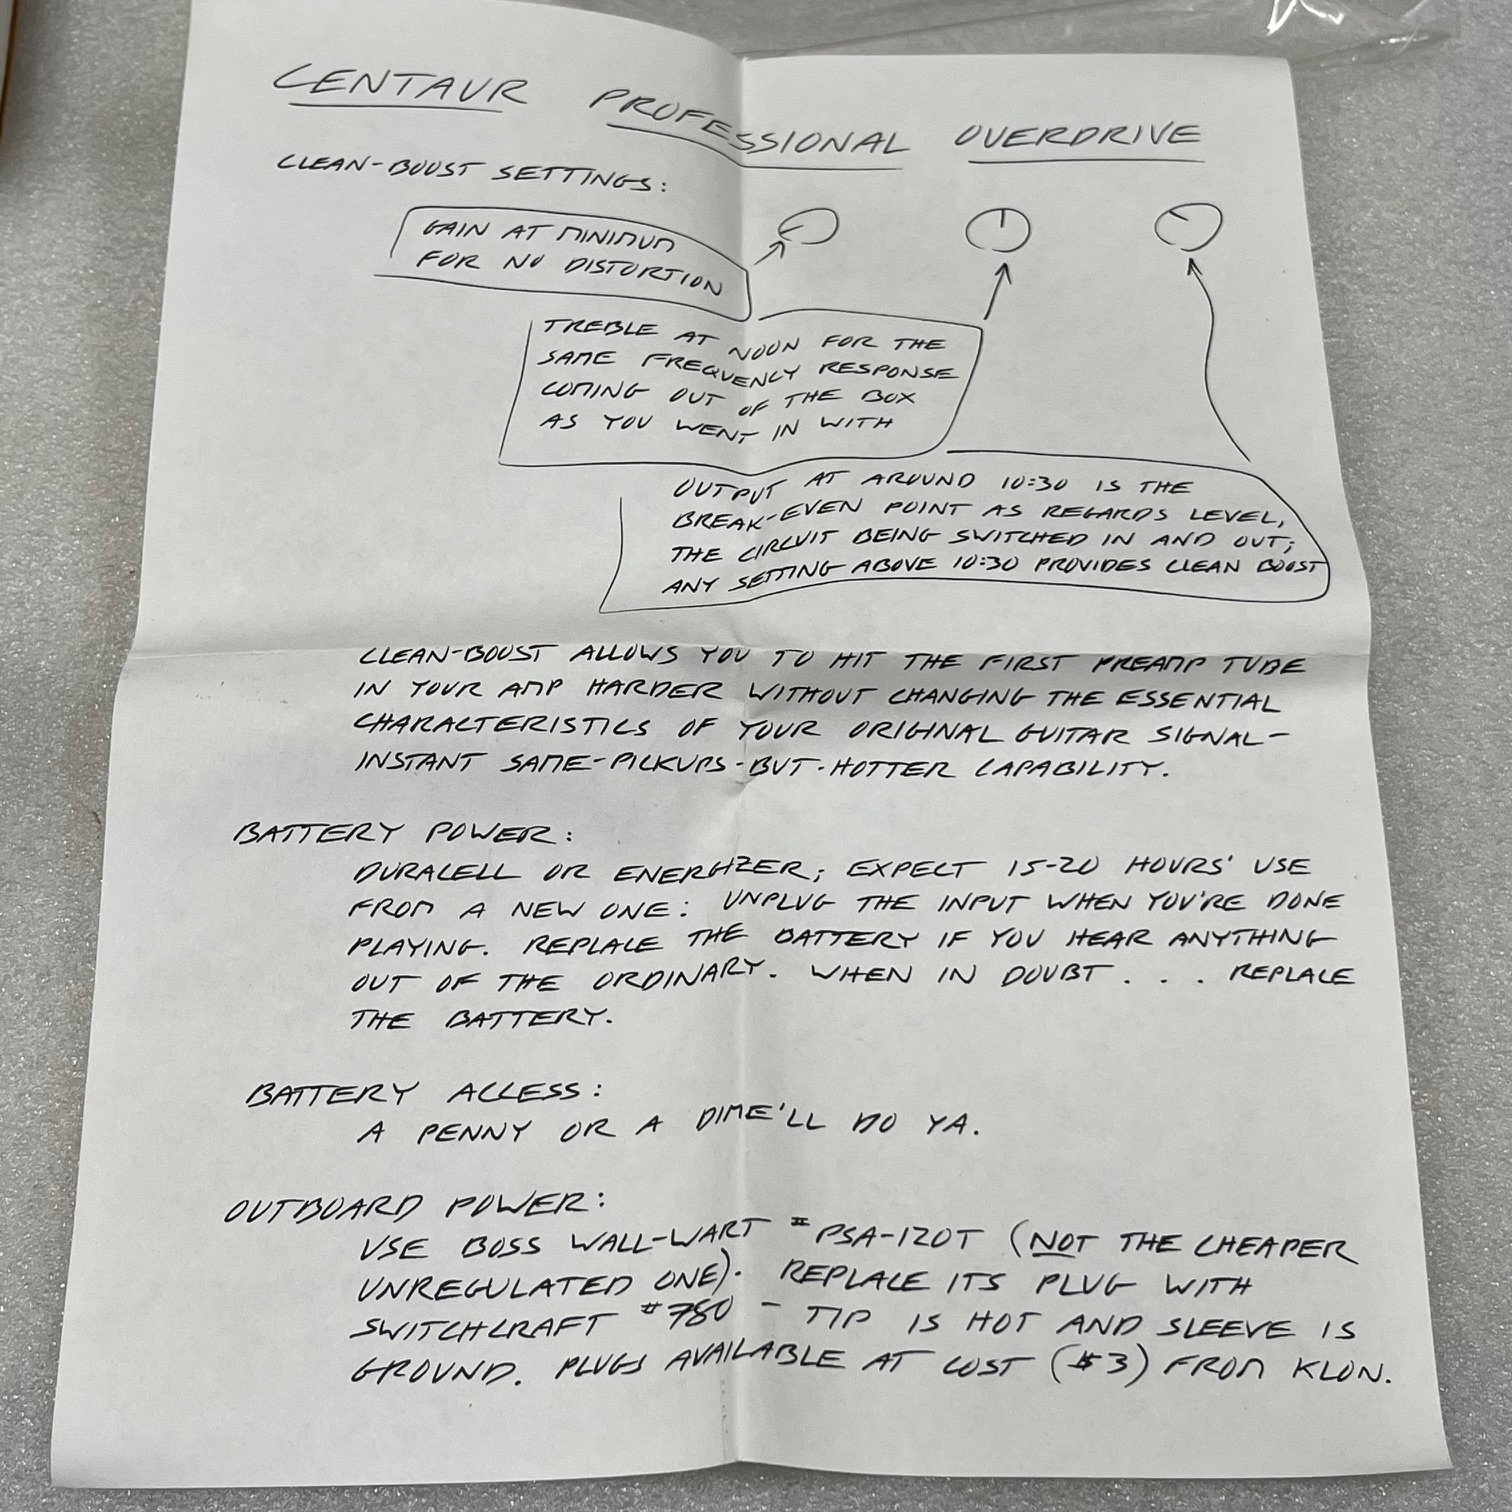 CENTAUR PROFESSIONAL OVERDRIVE
CLEAN-BOOST SETTINGS:
GAIN AT MINIMUM
FOR NO DISTORTION
TREBLE AT NOON FOR THE
SAME FREQUENCY RESPONSE
COMING OUT OF THE BOX
AS YOU WENT IN WITH
OUTPUT AT AROUND 10:30 IS THE
BREAK-EVEN POINT AS REGARDS LEVEL,
THE CIRCUIT BEING SWITCHED IN AND OUT;
ANY SETTING ABOVE 10:30 PROVIDES CLEAN BOOST
CLEAN-BOOST ALLOWS YOU TO HIT THE FIRST PREAMP TUBE
IN YOUR AMP HARDER WITHOUT CHANGING THE ESSENTIAL
CHARACTERISTICS OF YOUR ORIGINAL GUITAR SIGNAL-
INSTANT SAME-PICKUPS-BUT-HOTTER CAPABILITY.
BATTERY POWER:
DURACELL OR ENERGIZER; EXPECT 15-20 HOURS' USE
FROM A NEW ONE: UNPLUG THE INPUT WHEN YOU'RE DONE
PLAYING. REPLACE THE BATTERY IF YOU HEAR ANYTHING
OUT OF THE ORDINARY. WHEN IN DOUBT . . . REPLACE
THE BATTERY.
BATTERY ACCESS:
A PENNY OR A DIME'LL DO YA.
OUTBOARD POWER:
USE BOSS WALL-WART #PSA-120T (NOT THE CHEAPER
UNREGULATED ONE). REPLACE ITS PLUG WITH
SWITCHCRAFT #780 - TIP IS HOT AND SLEEVE IS
GROUND. PLUGS AVAILABLE AT COST ($3) FROM KLON.